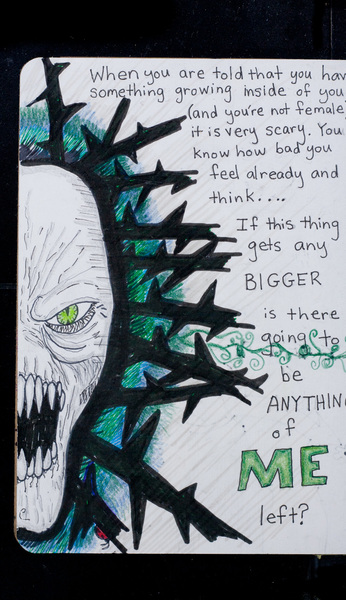 When you are told that you hav
something growing inside of you
(and you're not female
it is very scary. You
know how bad you
feel already and
think....
If this thing
gets any
BIGGER
is there
going to
be
ANYTHIN
of
ME
left?